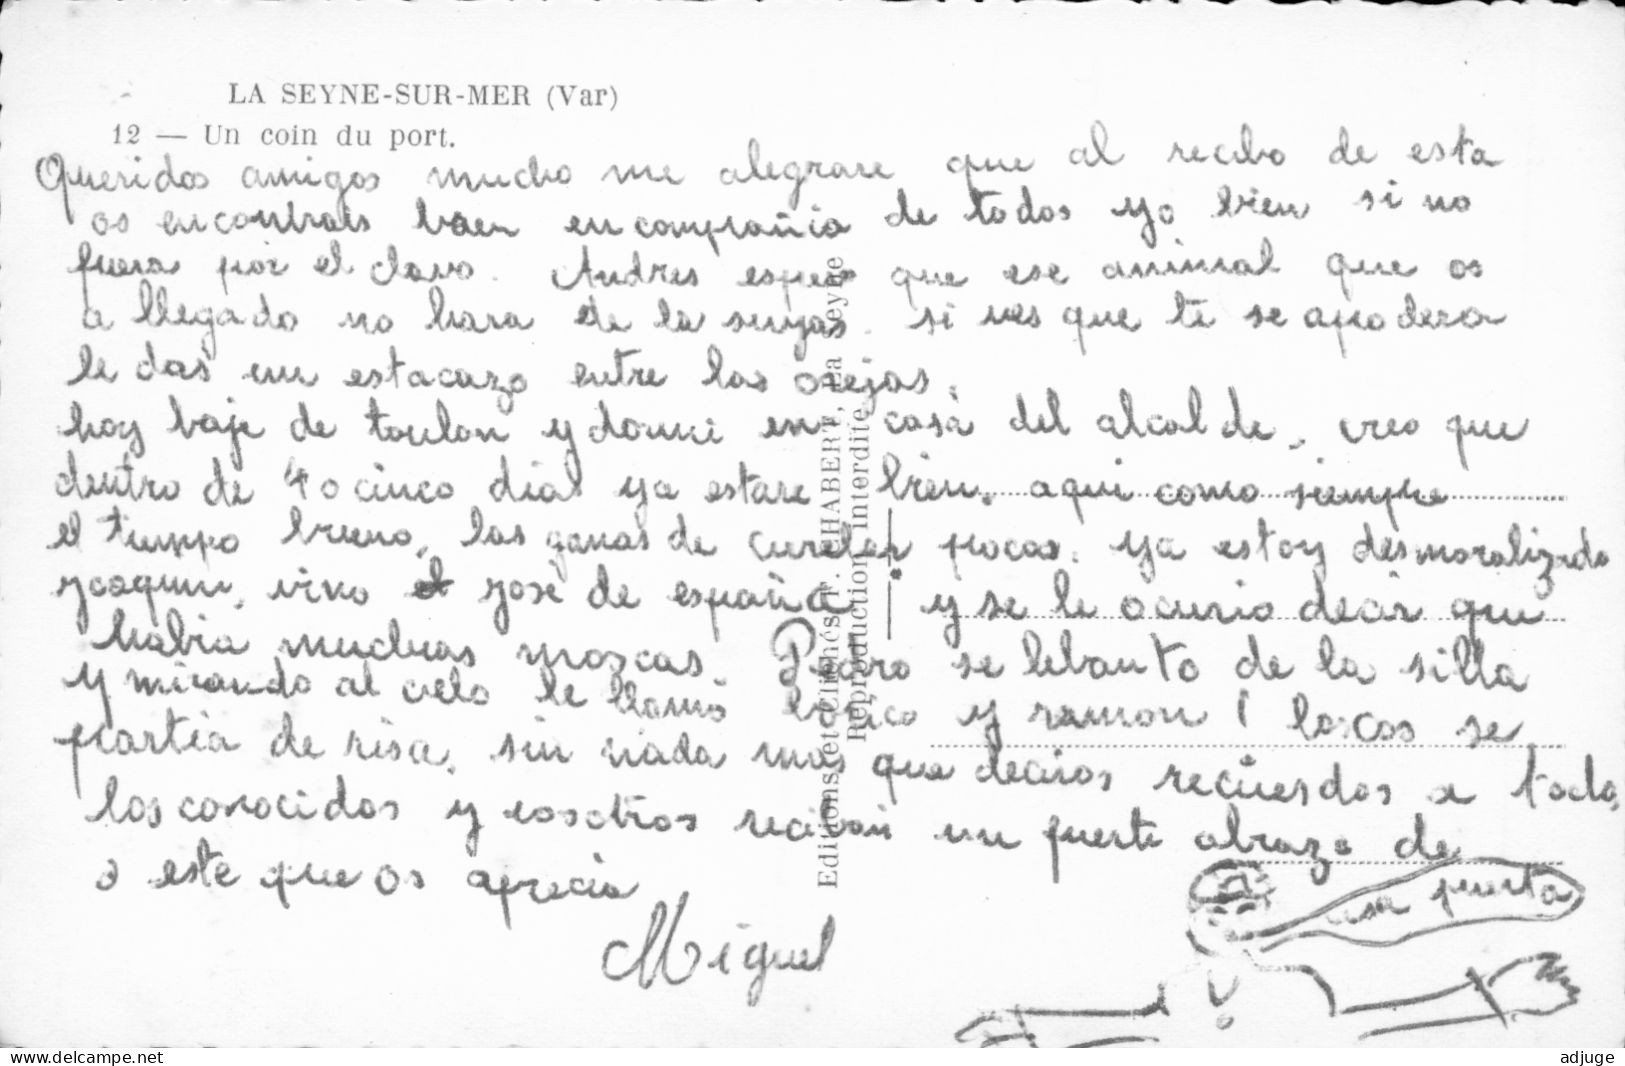 LA SEYNE-SUR-MER (Var)
12 — Un coin du port.
Queridos amigos mucho me alegrare que al recibo de esta
os encontrais bien en compañia de todos yo bien si no
fuera por el clavo. Andres espero que ese animal que os
a llegado no hara de la suyas. si ves que te se apodera
le das un estacazo entre las orejas.
hoy baje de toulon y dormi en casa del alcalde, creo que
dentro de 4 o cinco dias ya estare bien. aqui como siempre
el tiempo bueno, las ganas de pocas. ya estoy desmoralizado
Joaquin, vino el José de españa y se le ocurio decir que
habia muchas moscas. Pedro se lebanto de la silla
y mirando al cielo le llamó y ramon se
partia de risa. sin nada mas que deciros recuerdos a todos
los conocidos y vosotros reciban un fuerte abrazo de
este que os aprecia
Miguel
esa puerta
Editions et Clichés F. CHABERT, La Seyne
Reproduction interdite
www.delcampe.net
adjuge